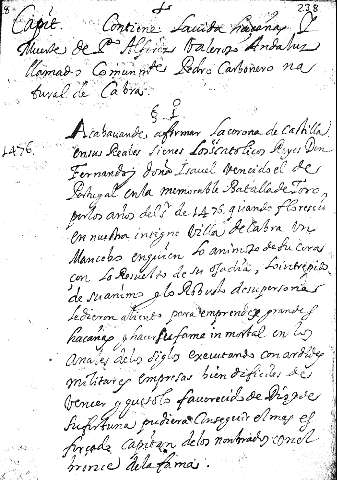 8 228
Capit. Contiene La vida hazañas Y
Muerte de Pº Alferez Valeroso Andaluz
llamado Comunmte Pedro Carbonero na
tural de Cabra.
§ 1º
1476.
Acabavan de afirmar la corona de Castilla
en sus Reales sienes Los Catolicos Reyes Don
Fernando y doña Isavel vencido el de
Portugal en la memorable Batalla de Toro,
por los años del Sr de 1476, quando florecia
en nuestra insigne Villa de Cabra un
Mancebo en quien Lo animoso de su coraz
con Lo Resuelto de su osadia, Lo intrepido
de su animo y lo Robusto de su persona
le dieron aliento para emprender grandes
hazañas y hacer su fama inmortal en los
Anales de los siglos executando con ardides
militares empresas bien dificiles de
vencer y que solo favorecido de Dios y de
su fortuna pudiera Conseguir el mas es
forçado capitan de los nombrados con el
bronce de la fama.